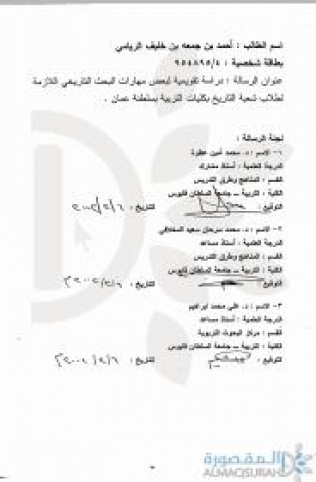 اسم الطالب : أحمد بن جمعه بن خليف الريامي
بطاقة شخصية : ٩٥٤٨٩٥/٤
عنوان الرسالة : دراسة تقويمية لبعض مهارات البحث التاريخي اللازمة
لطلاب شعبة التاريخ بكليات التربية بسلطنة عمان .
لجنة الرسالة :
١- الاسم : د. محمد أمين عطوة
الدرجة العلمية : أستاذ مشارك
القسم : المناهج وطرق التدريس
الكلية : التربية – جامعة السلطان قابوس
التوقيع : التاريخ :
٢- الاسم : د. محمد سرحان سعيد المخلافي
الدرجة العلمية : أستاذ مساعد
القسم : المناهج وطرق التدريس
الكلية : التربية – جامعة السلطان قابوس
التوقيع : التاريخ :
٣- الاسم : د. علي محمد ابراهيم
الدرجة العلمية : أستاذ مساعد
القسم : مركز البحوث التربوية
الكلية : التربية – جامعة السلطان قابوس
التوقيع : التاريخ :
المقصورة
ALMAQSURAH